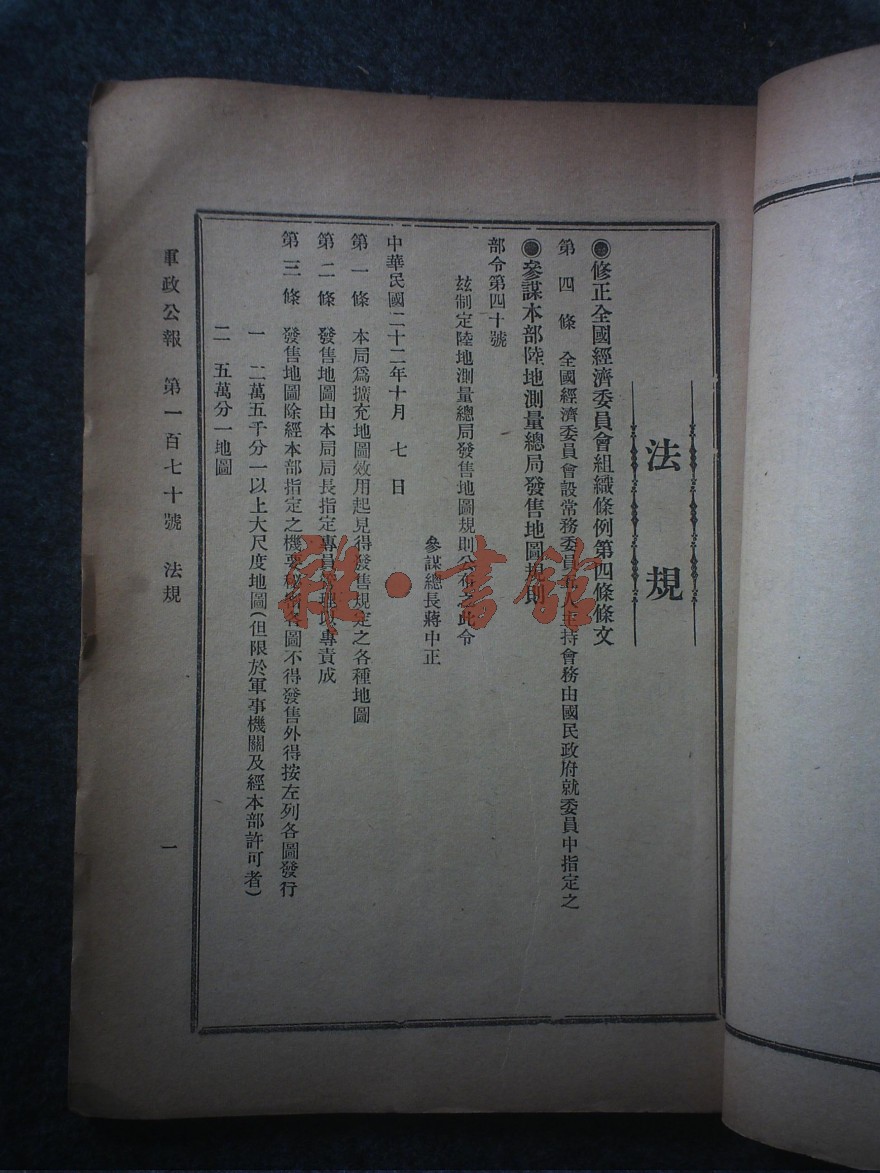 法規
●修正全國經濟委員會組織條例第四條條文
第四條 全國經濟委員會設常務委員五人主持會務由國民政府就委員中指定之
●參謀本部陸地測量總局發售地圖規則
部令第四十號
玆制定陸地測量總局發售地圖規則公布之此令
參謀總長蔣中正
中華民國二十二年十月七日
第一條 本局爲擴充地圖效用起見得發售規定之各種地圖
第二條 發售地圖由本局局長指定專員辦理以專責成
第三條 發售地圖除經本部指定之機要秘密各圖不得發售外得按左列各圖發行
一 二萬五千分一以上大尺度地圖(但限於軍事機關及經本部許可者)
二 五萬分一地圖
軍政公報 第一百七十號 法規 一
雜·書館